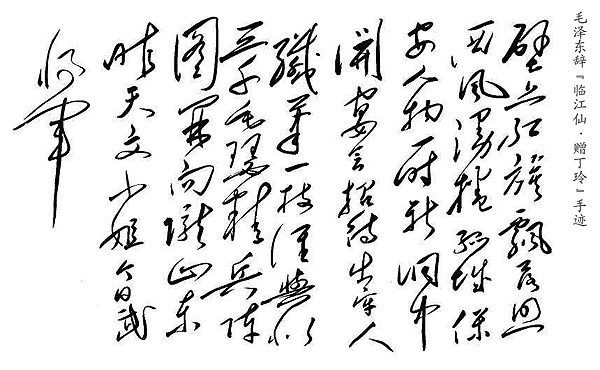 毛泽东辞『临江仙·赠丁玲』手迹
壁上红旗飘落照
西风漫捲孤城保
安人物一时新洞中
開宴会招待出牢人
纖筆一枝谁與似
三千毛瑟精兵陣
图開向隴山東
昨天文小姐今日武
将军